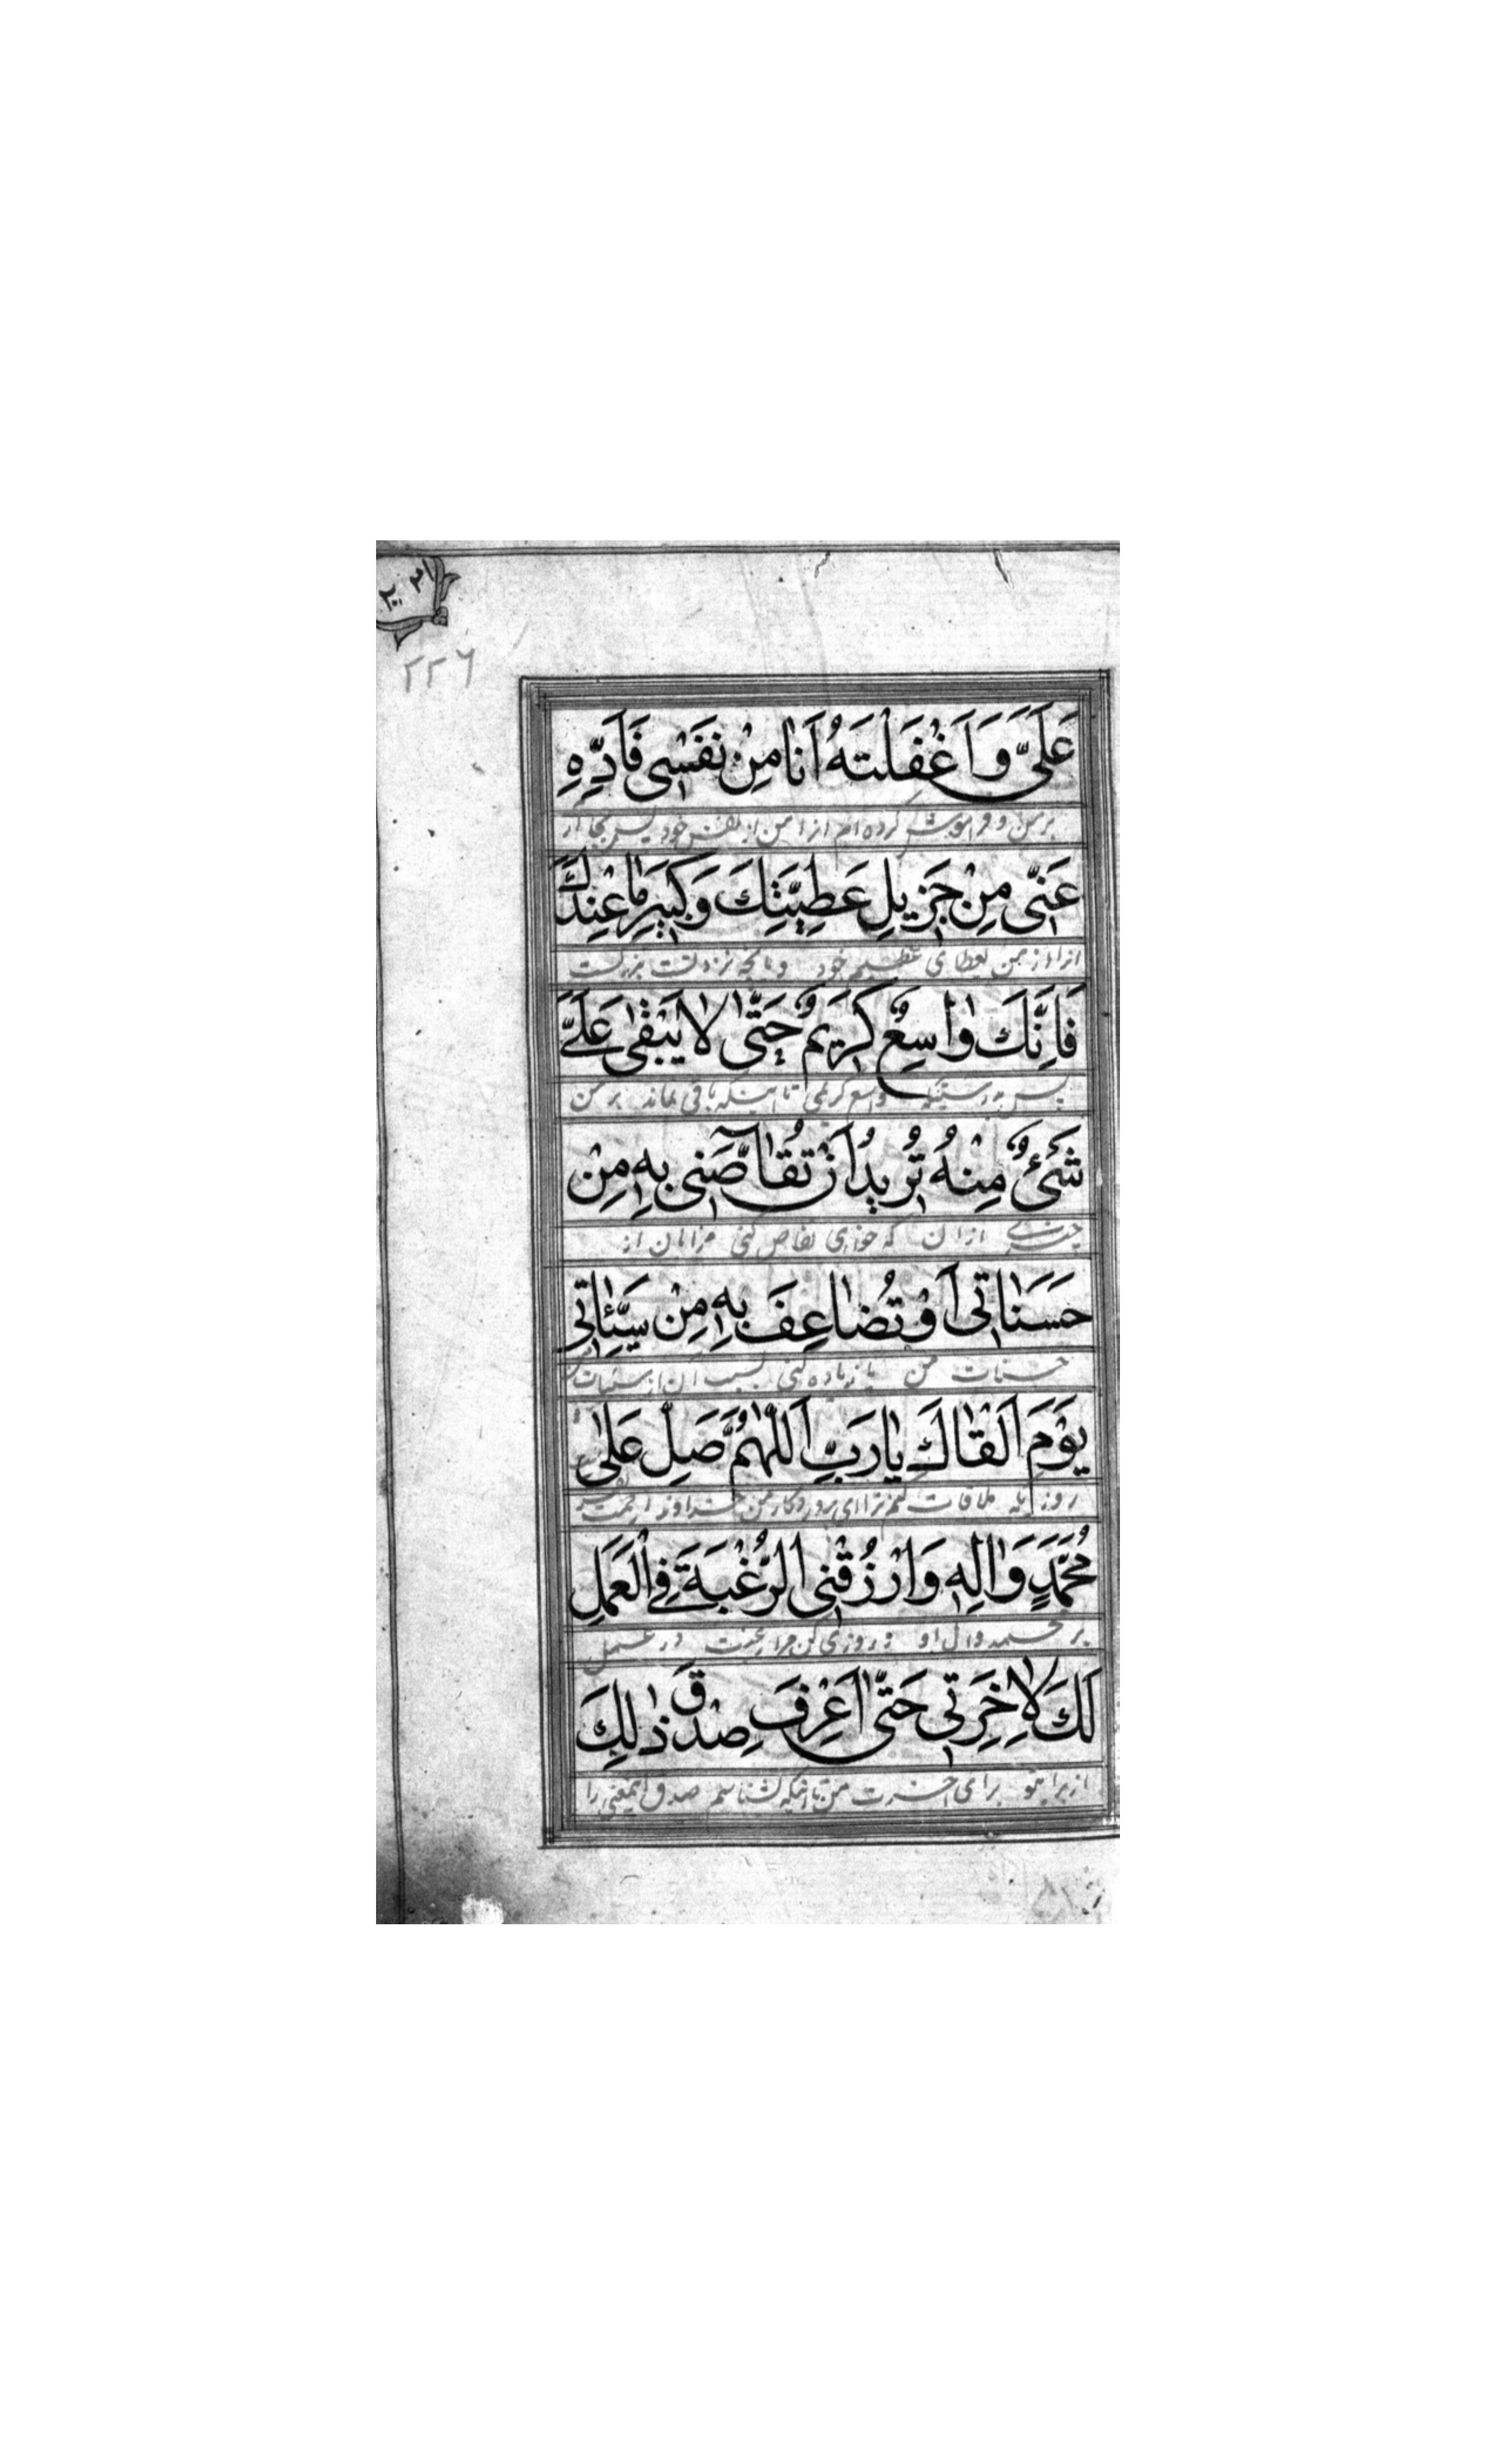 ٢٢٦
عَلَىَّ وَاَغْفَلْتَهُ اَنَا مِنْ نَفْسِى فَاَدِّهِ
بر من و فراموش کرده ام انرا من از نفس خود پس
عَنِّى مِنْ جَزِيلِ عَطِيَّتِكَ وَكَبِيرِ مَا عِنْدَكَ
انرا از من عطای عظیم خود و بانچه نزد تست بزرگست
فَاِنَّكَ وَاسِعٌ كَرِيمٌ حَتّٰى لَا يَبْقٰى عَلَىَّ
پس بدرستیکه واسع کریمی تا اینکه باقی نماند بر من
شَىْءٌ مِنْهُ تُرِيدُ اَنْ تُقَاصَّنِى بِهِ مِنْ
چیزی ازان که خواهی تقاص کنی مرا بان از
حَسَنَاتِى اَوْ تُضَاعِفَ بِهِ مِنْ سَيِّئَاتِى
حسنات من یا زیاده کنی بسبب آن از سیئات من
يَوْمَ اَلْقَاكَ يَا رَبِّ اَللّٰهُمَّ صَلِّ عَلٰى
روزیکه ملاقات کنم ترا ای پروردگار من خداوندا رحمت بفرست
مُحَمَّدٍ وَاٰلِهِ وَارْزُقْنِى الرَّغْبَةَ فِى الْعَمَلِ
بر محمد و ال او و روزی کن مرا رغبت در عمل
لَكَ لِاٰخِرَتِى حَتّٰى اَعْرِفَ صِدْقَ ذٰلِكَ
از برای تو برای اخرت من تا اینکه بشناسم صدق اینمعنی را